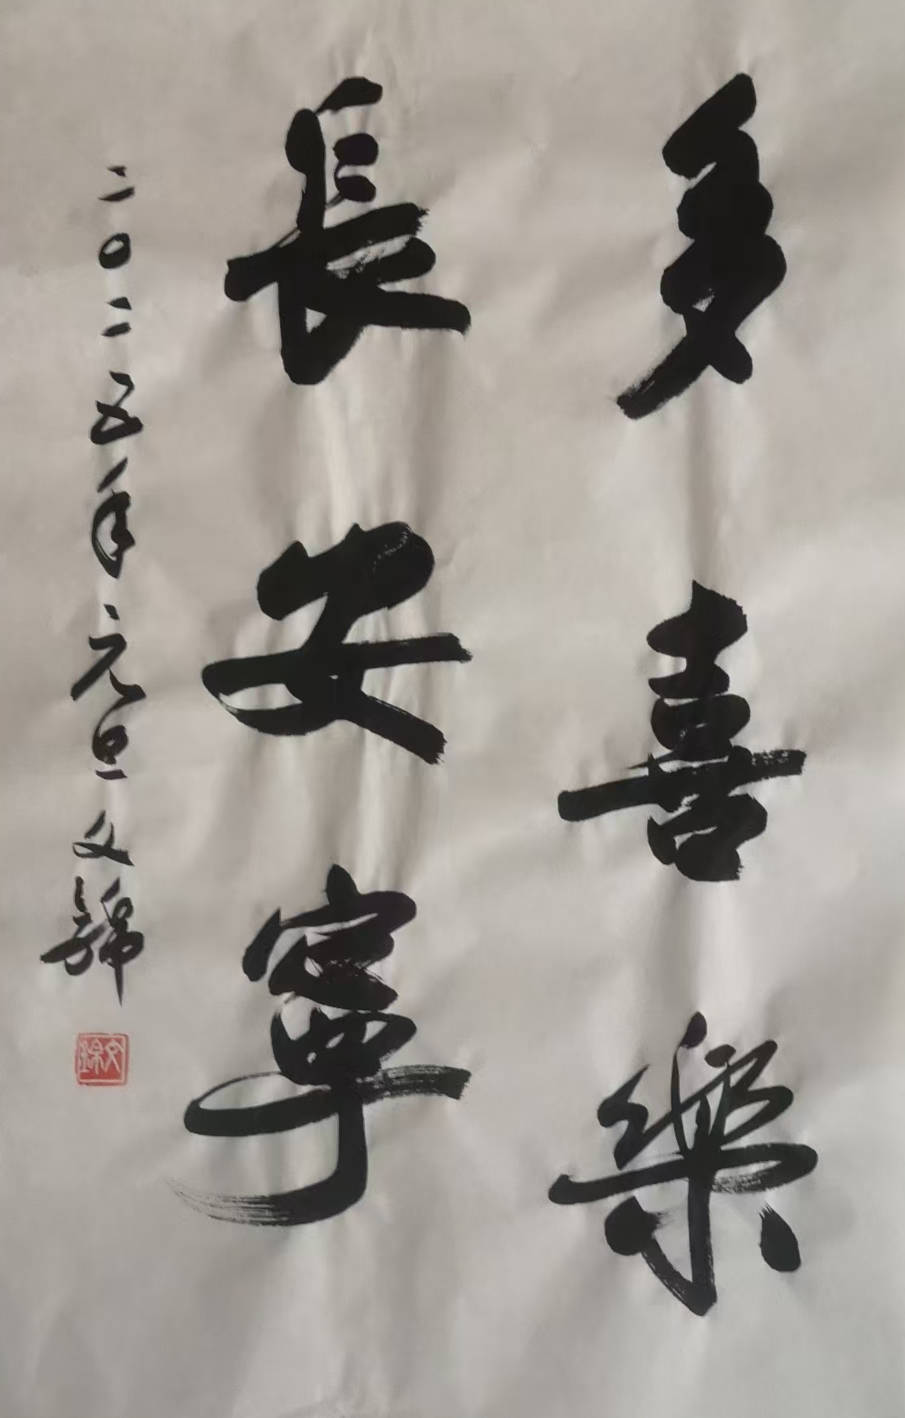 多喜樂
長安寧
二〇二五年元旦文